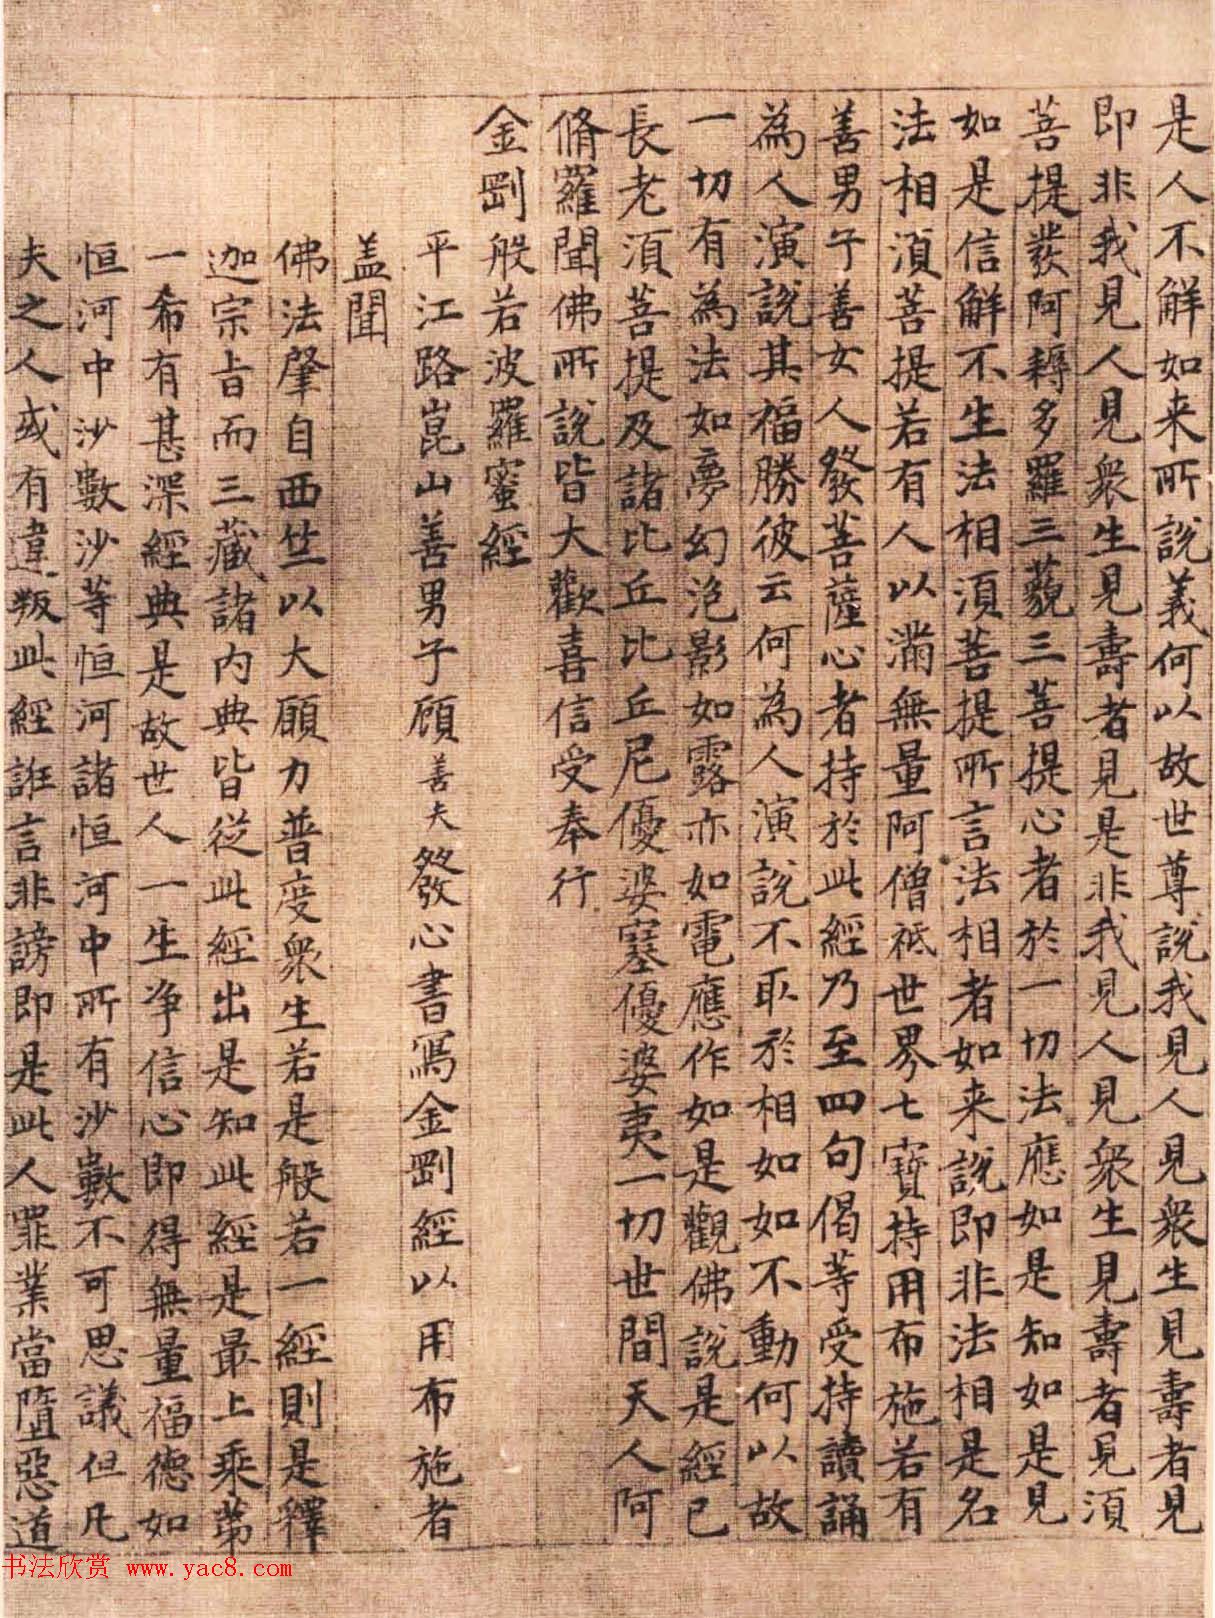 是人不解如来所說義何以故世尊說我見人見衆生見壽者見
即非我見人見衆生見壽者見是非我見人見衆生見壽者見湏
菩提發阿耨多羅三藐三菩提心者於一切法應如是知如是見
如是信解不生法相湏菩提所言法相者如来說即非法相是名
法相湏菩提若有人以滿無量阿僧祇世界七寶持用布施若有
善男子善女人發菩薩心者持於此經乃至四句偈等受持讀誦
為人演說其福勝彼云何為人演說不取於相如如不動何以故
一切有為法如夢幻泡影如露亦如電應作如是觀佛說是經已
長老湏菩提及諸比丘比丘尼優婆塞優婆夷一切世間天人阿
脩羅聞佛所說皆大歡喜信受奉行
金剛般若波羅蜜經
平江路崑山善男子顧善夫發心書寫金剛經以用布施者
盖聞
佛法肇自西竺以大願力普度衆生若是般若一經則是釋
迦宗旨而三藏諸内典皆從此經出是知此經是最上乘第
一希有甚深經典是故世人一生净信心即得無量福德如
恒河中沙數沙等恒河諸恒河中所有沙數不可思議但凡
夫之人或有違叛此經誑言非謗即是此人罪業當墮惡道
书法欣赏 www.yac8.com